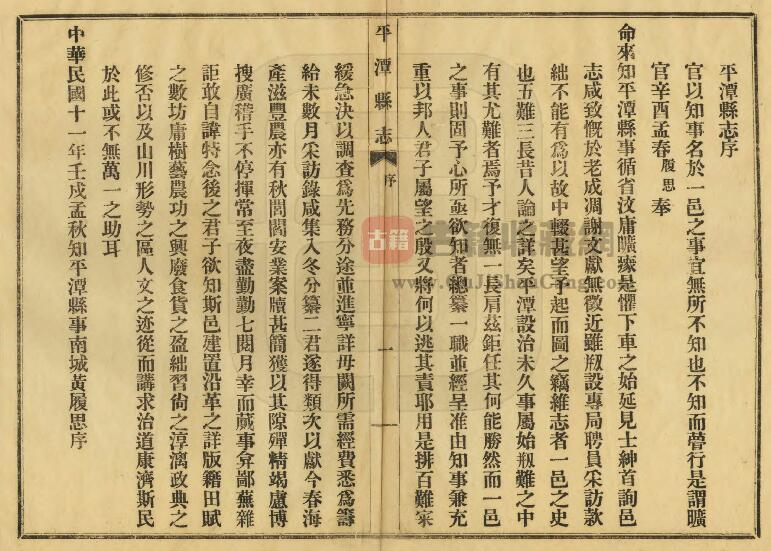 平潭縣志序
官以知事名於一邑之事宜無所不知也不知而瞢行是謂曠
官辛酉孟春履思奉
命來知平潭縣事循省汶庸隳瘝是懼下車之始延見士紳首詢邑
志咸致慨於老成凋謝文獻無徵近雖剏設專局聘員采訪款
絀不能有爲以故中輟甚望予起而圖之竊維志者一邑之史
也五難三長昔人論之詳矣平潭設治未久事屬始剏難之中
有其尤難者焉予才復無一長肩茲鉅任其何能勝然而一邑
之事則固予心所亟欲知者總纂一職並經呈准由知事兼充
重以邦人君子屬望之殷又將何以逃其責耶用是排百難寀
平潭縣志
序
一
緩急決以調查爲先務分途並進寧詳毋闕所需經費悉爲籌
給未數月采訪錄咸集入冬分纂二君遂得類次以獻今春海
產滋豐農亦有秋閭閻安業案牘甚簡獲以其隙殫精竭慮博
搜廣稽手不停揮常至夜盡勤勤七閱月幸而蕆事弇鄙蕪雜
詎敢自諱特念後之君子欲知斯邑建置沿革之詳版籍田賦
之數坊庸樹藝農功之興廢食貨之盈絀習尙之淳漓政典之
修否以及山川形勢之區人文之迹從而講求治道康濟斯民
於此或不無萬一之助耳
中華民國十一年壬戌孟秋知平潭縣事南城黃履思序
古籍
古籍收藏網
www.GuJiShuCang.com